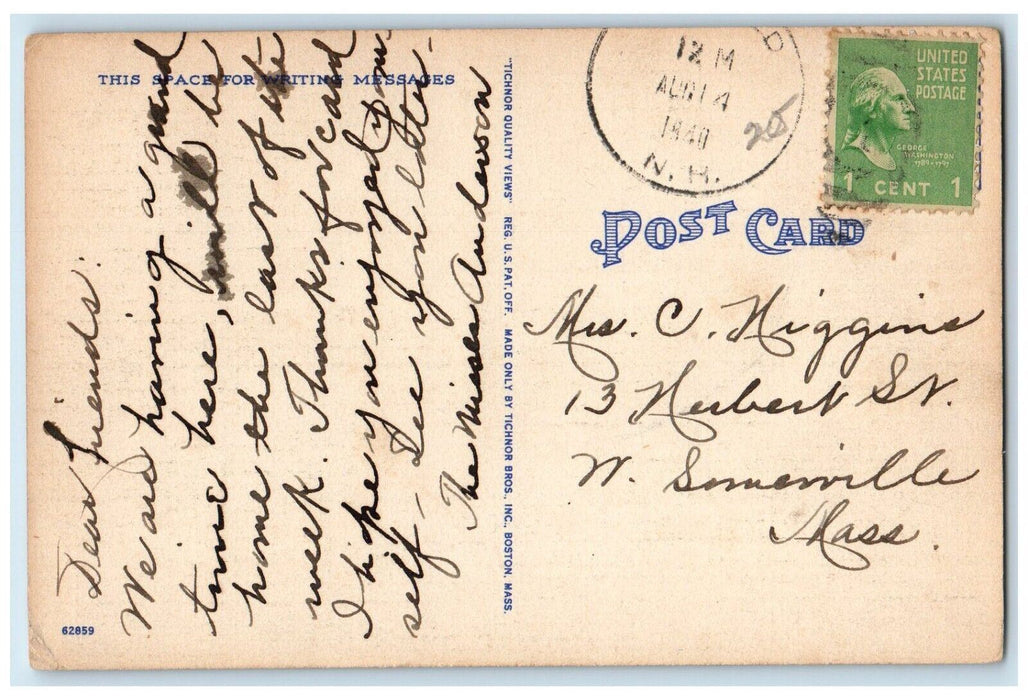 THIS SPACE FOR WRITING MESSAGES
Dear Friends:
We are having a grand
time here, will be
home the last of the
week. Thanks for card
I hope you enjoyed your
self - See you later -
The Misses Anderson
62859
"TICHNOR QUALITY VIEWS" REG. U.S. PAT. OFF. MADE ONLY BY TICHNOR BROS., INC., BOSTON, MASS.
12 M
AUG 14
1940
N. H.
20
UNITED
STATES
POSTAGE
GEORGE
WASHINGTON
1789-1797
1 CENT 1
POST CARD
Mrs. C. Higgins
13 Herbert St.
W. Somerville
Mass.